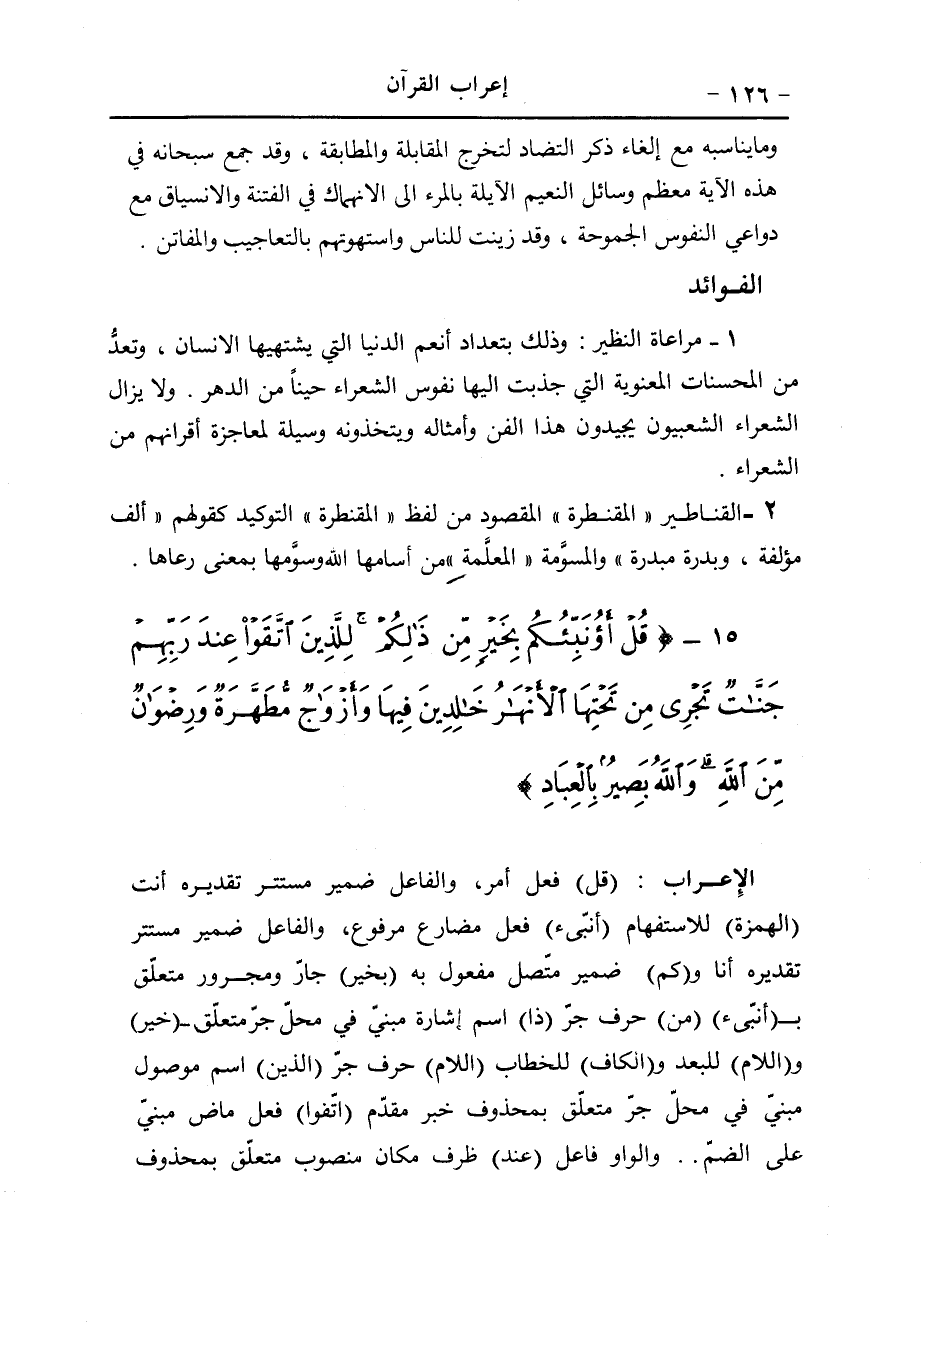 - ١٢٦ - إعراب القرآن
ومايناسبه مع إلغاء ذكر التضاد لتخرج المقابلة والمطابقة ، وقد جمع سبحانه في
هذه الآية معظم وسائل النعيم الآيلة بالمرء الى الانهماك في الفتنة والانسياق مع
دواعي النفوس الجموحة ، وقد زينت للناس واستهوتهم بالتعاجيب والمفاتن .
الفـوائد
١ ـ مراعاة النظير : وذلك بتعداد أنعم الدنيا التي يشتهيها الانسان ، وتعدُّ
من المحسنات المعنوية التي جذبت اليها نفوس الشعراء حيناً من الدهر . ولا يزال
الشعراء الشعبيون يجيدون هذا الفن وأمثاله ويتخذونه وسيلة لمعاجزة أقرانهم من
الشعراء .
٢ ـالقنـاطـير « المقنـطرة » المقصود من لفظ « المقنطرة » التوكيد كقولهم « ألف
مؤلفة ، وبدرة مبدرة » والمسوَّمة « المعلَّمة »من أسامها اللهوسوَّمها بمعنى رعاها .
١٥ ـ ﴿ قُلْ أَؤُنَبِّئُكُم بِخَيْرٍ مِّن ذَٰلِكُمْ ۚ لِلَّذِينَ ٱتَّقَوْا۟ عِندَ رَبِّهِمْ
جَنَّـٰتٌ تَجْرِى مِن تَحْتِهَا ٱلْأَنْهَـٰرُ خَـٰلِدِينَ فِيهَا وَأَزْوَٰجٌ مُّطَهَّرَةٌ وَرِضْوَٰنٌ
مِّنَ ٱللَّهِ ۗ وَٱللَّهُ بَصِيرٌۢ بِٱلْعِبَادِ ﴾
الإعـــراب : (قل) فعل أمر، والفاعل ضمير مستتـر تقديـره أنت
(الهمزة) للاستفهام (أنبّىء) فعل مضارع مرفوع، والفاعل ضمير مستتر
تقديره أنا و(كم) ضمير متّصل مفعول به (بخير) جارّ ومجـرور متعلّق
بــ(أنبّىء) (من) حرف جرّ (ذا) اسم إشارة مبنيّ في محلّ جرّ متعلّق ـ(خير)
و(اللام) للبعد و(الكاف) للخطاب (اللام) حرف جرّ (الذين) اسم موصول
مبنيّ في محلّ جرّ متعلّق بمحذوف خبر مقدّم (اتّقوا) فعل ماض مبنيّ
على الضمّ. . والواو فاعل (عند) ظرف مكان منصوب متعلّق بمحذوف